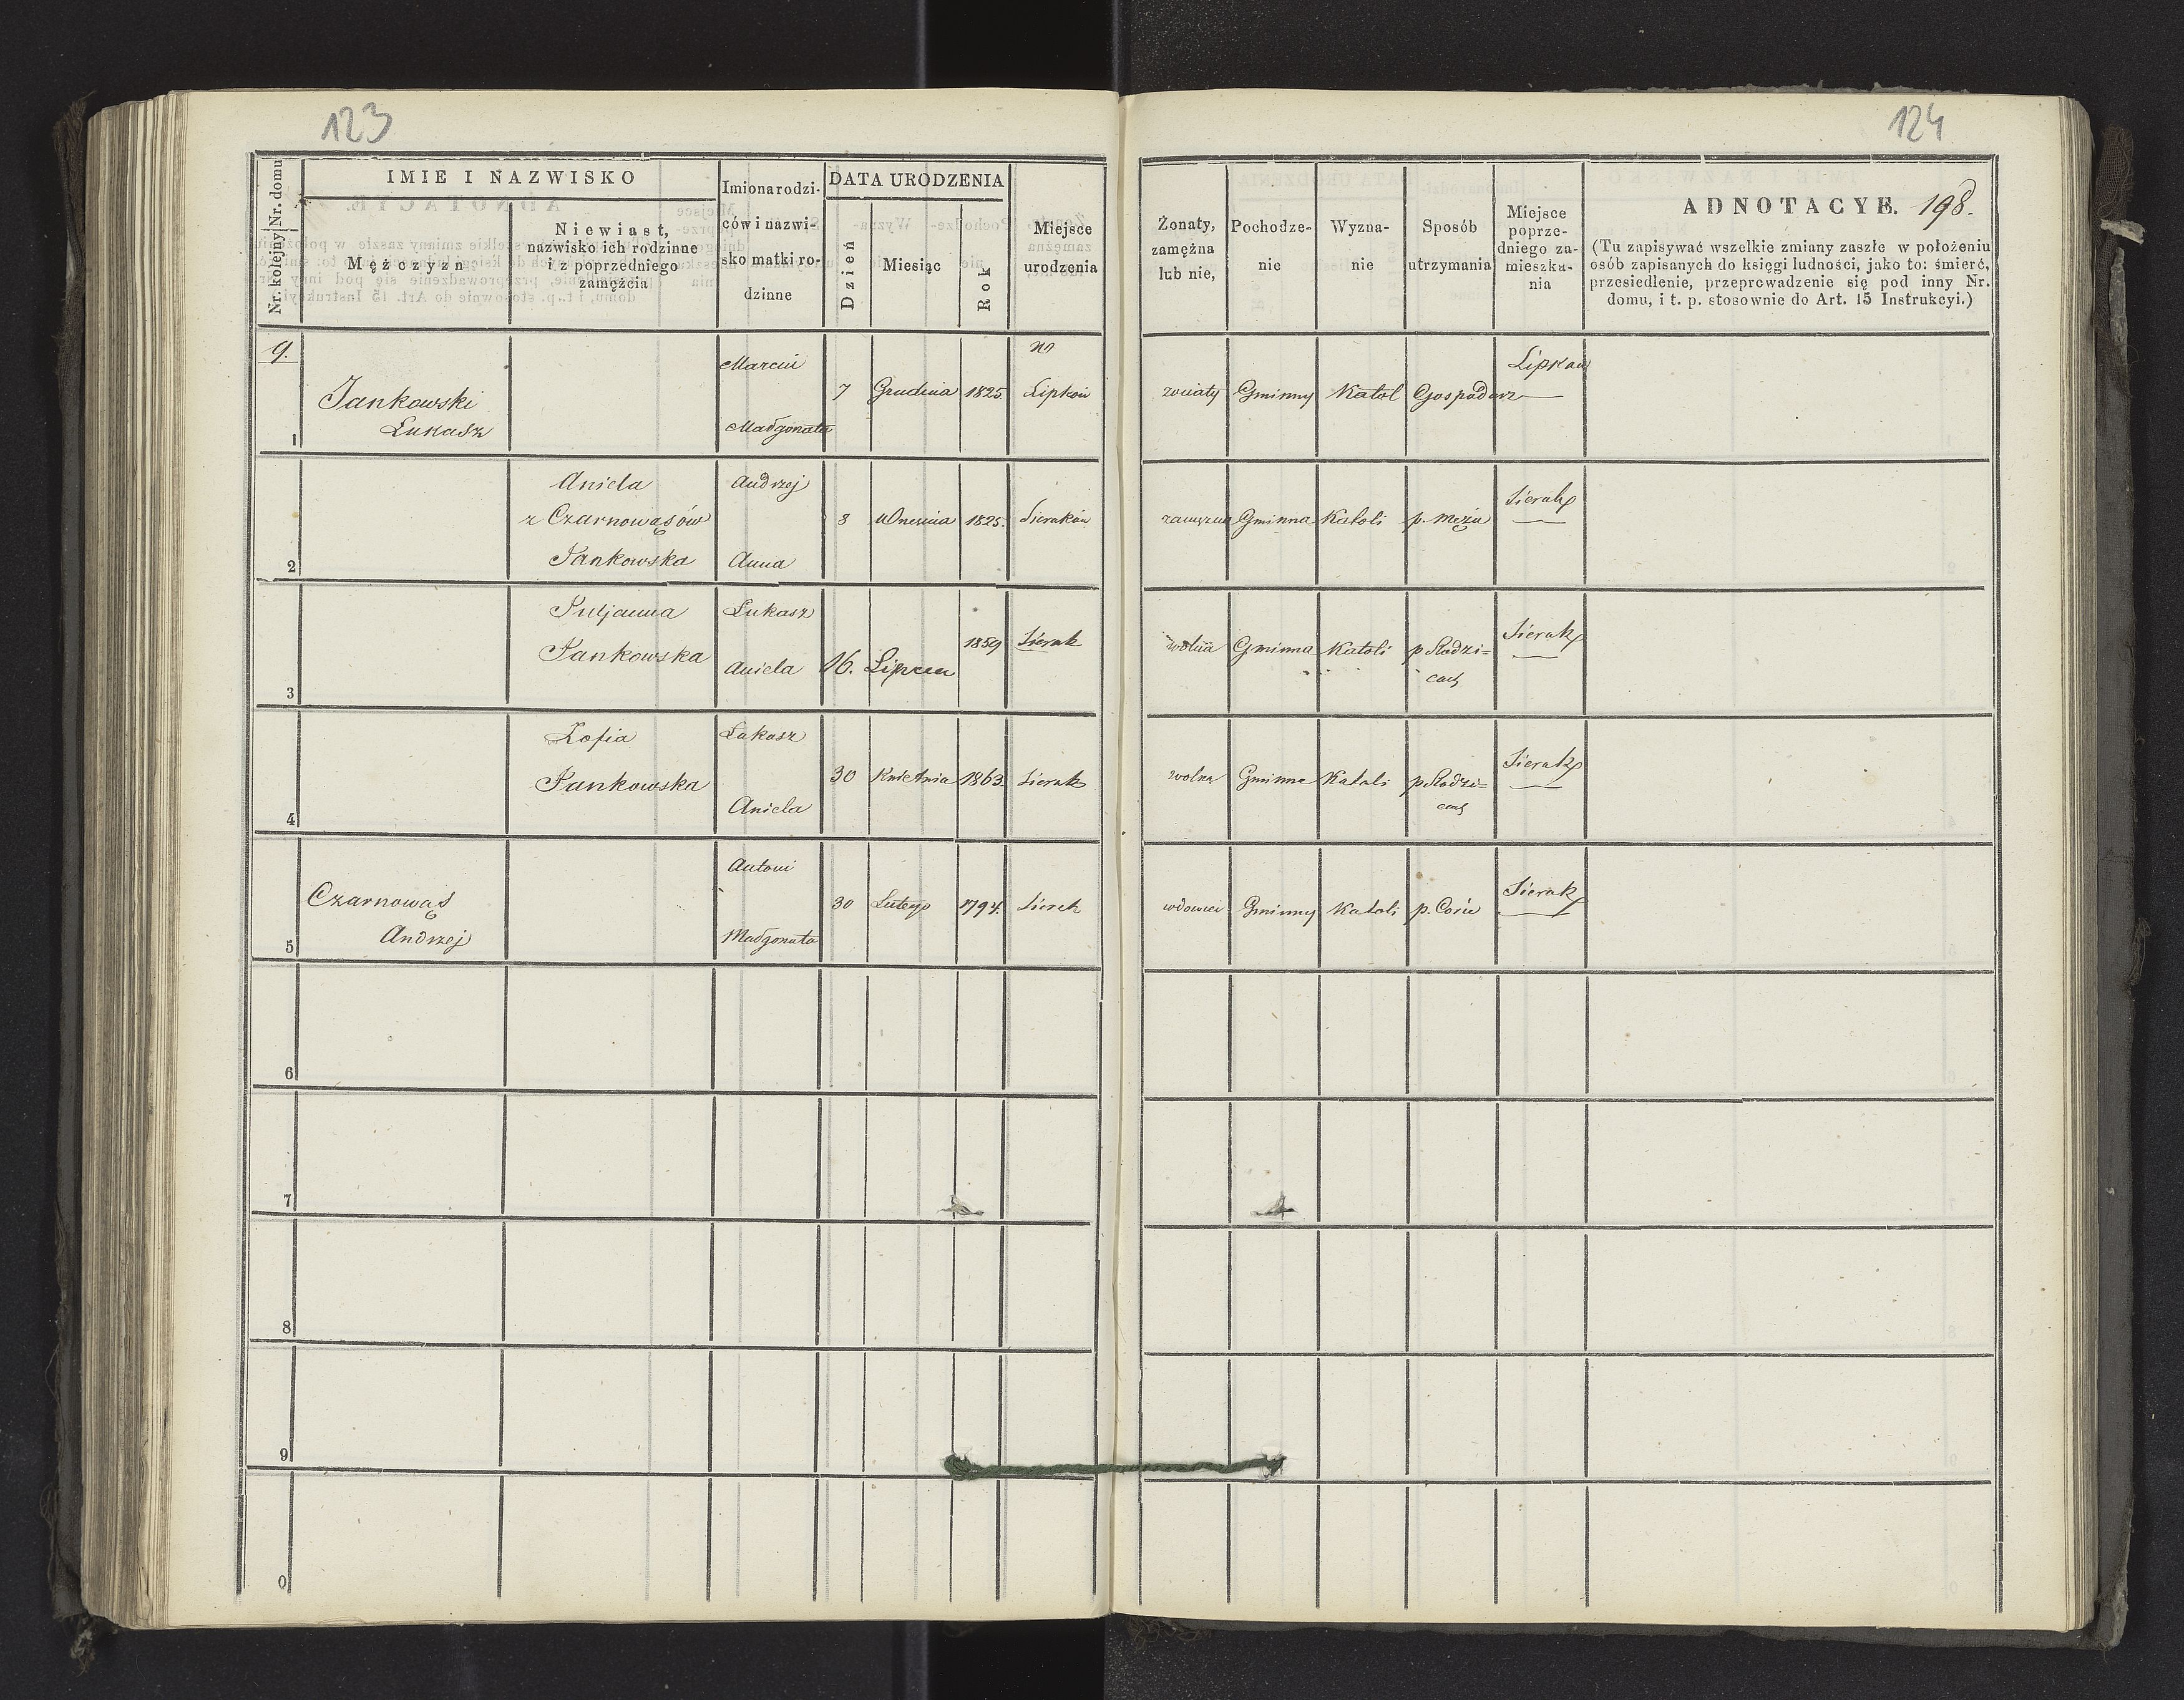 123
124
Nr. kolejny Nr. domu
IMIE I NAZWISKO
Mężczyzn
Niewiast,
nazwisko ich rodzinne
i z poprzedniego
zamężcia
Imiona rodzi-
ców i nazwi-
sko matki ro-
dzinne
DATA URODZENIA
Dzień
Miesiąc
Rok
Miejsce
urodzenia
Żonaty,
zamężna
lub nie,
Pochodze-
nie
Wyzna-
nie
Sposób
utrzymania
Miejsce
poprze-
dniego za-
mieszka-
nia
ADNOTACYE. 198.
(Tu zapisywać wszelkie zmiany zaszłe w położeniu
osób zapisanych do księgi ludności, jako to: śmierć,
przesiedlenie, przeprowadzenie się pod inny Nr.
domu, i t. p. stosownie do Art. 15 Instrukcyi.)
9.
1
Jankowski
Łukasz
Marcin
Małgorzata
7 Grudnia 1825.
Lipków
żonaty Gminny Katol Gospodarz
Lipków
2
Aniela
z Czarnowąsów
Jankowska
Andrzej
Anna
8 Września 1825.
Sieraków
zamężna Gminna Katoli p. mężu
Sierak
3
Juljanna
Jankowska
Łukasz
Aniela
16. Lipca 1859
Sierak
wolna Gminna Katoli p Rodzi=
cach
Sierak
4
Zofia
Jankowska
Łukasz
Aniela
30 Kwietnia 1863.
Sierak
wolna Gminna Katoli p Rodzi=
cach
Sierak
5
Czarnowąs
Andrzej
Antoni
Małgorzata
30 Lutego 1794.
Sierak
wdowiec Gminny Katoli p. Córce
Sierak
6
7
8
9
0